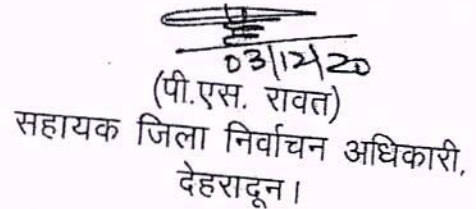 03/12/20
(पी.एस. रावत)
सहायक जिला निर्वाचन अधिकारी,
देहरादून।